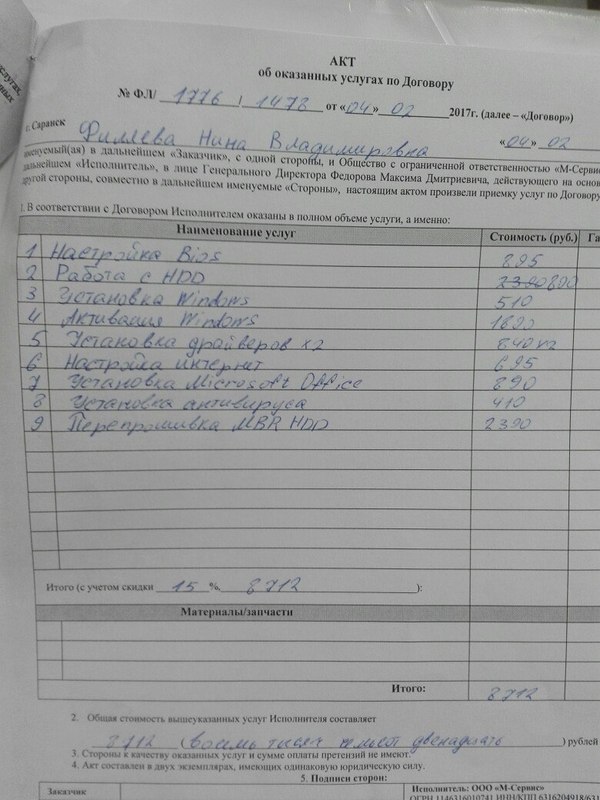 АКТ
об оказанных услугах по Договору
№ ФЛ/ 1776 / 1478 от «04» 02 2017г. (далее – «Договор»)
г. Саранск «04» 02
Филяева Нина Владимировна
именуемый(ая) в дальнейшем «Заказчик», с одной стороны, и Общество с ограниченной ответственностью «М-Сервис
дальнейшем «Исполнитель», в лице Генерального Директора Федорова Максима Дмитриевича, действующего на осно
другой стороны, совместно в дальнейшем именуемые «Стороны», настоящим актом произвели приемку услуг по Договору
1. В соответствии с Договором Исполнителем оказаны в полном объеме услуги, а именно:
Наименование услуг Стоимость (руб.) Га
1 Настройка Bios 895
2 Работа с HDD 2390 890
3 Установка Windows 510
4 Активация Windows 1890
5 Установка драйверов x2 840x2
6 Настройка интернет 695
7 Установка Microsoft Office 890
8 Установка антивируса 410
9 Перепрошивка MBR HDD 2390
Итого (с учетом скидки 15 %, 8712 ):
Материалы/запчасти
Итого: 8712
2. Общая стоимость вышеуказанных услуг Исполнителя составляет
8712 (восемь тысяч семьсот двенадцать ) рублей
3. Стороны к качеству оказанных услуг и сумме оплаты претензий не имеют.
4. Акт составлен в двух экземплярах, имеющих одинаковую юридическую силу.
5. Подписи сторон:
Заказчик Исполнитель: ООО «М-Сервис»
ОГРН 1146316010741 ИНН/КПП 6316204918/631